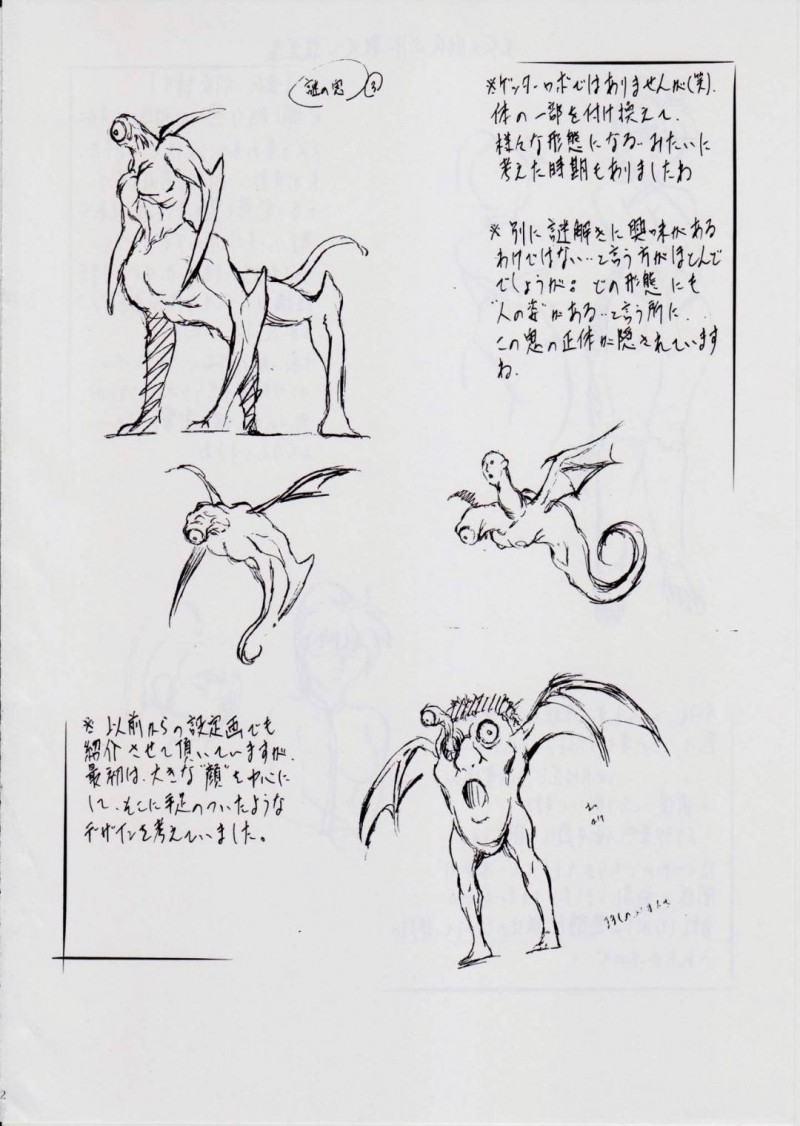 謎の鬼 ③
※ゲッターロボではありませんが(笑).
体の一部を付け換えて.
様々な形態になる‥みたいに
考えた時期もありましたね
※別に謎解きに興味がある
わけではない‥と言う方がほとんど
でしょうが。どの形態にも
"人の姿"がある‥と言う所に‥
この鬼の正体が隠されています
ね.
※以前からの設定画でも
紹介させて頂いていますが.
最初は.大きな"顔"を中心に
して.そこに手足のついたような
デザインを考えていました。
2